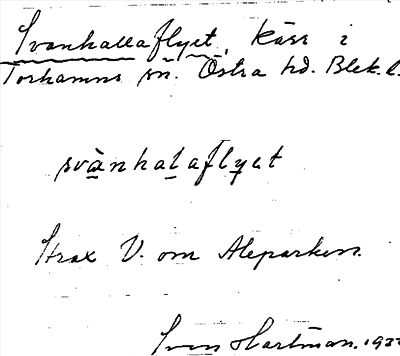 Svanhallaflyet, kärr i
Torhamns sn. Östra hd. Blek. l.
svànhalaflyet
Strax V. om Aleparken.
Sven Hartman.